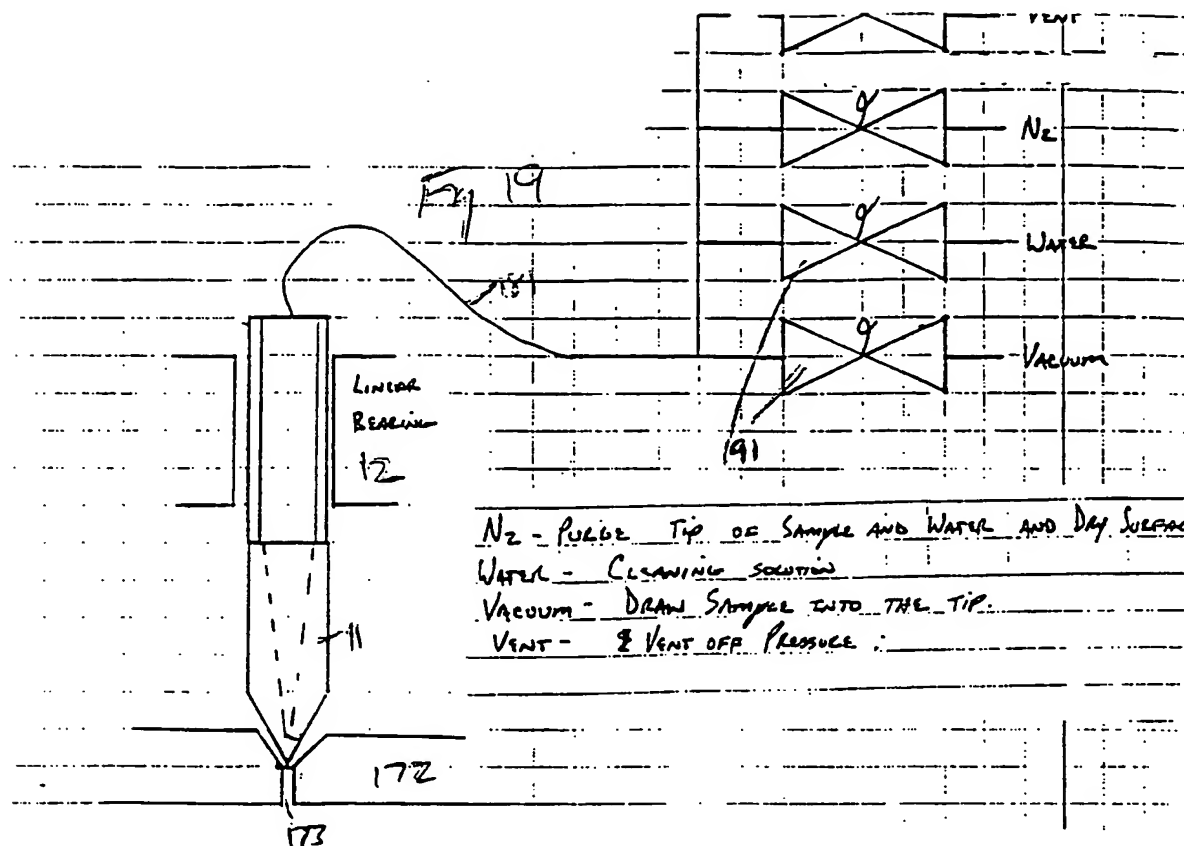 VENT
N2
Fig 19
WATER
181
VACUUM
LINEAR
BEARING
12
191
N2 - PURGE TIP OF SAMPLE AND WATER AND DRY SURFAC
WATER - CLEANING SOLUTION
VACUUM - DRAW SAMPLE INTO THE TIP.
VENT - VENT OFF PRESSURE.
11
172
173